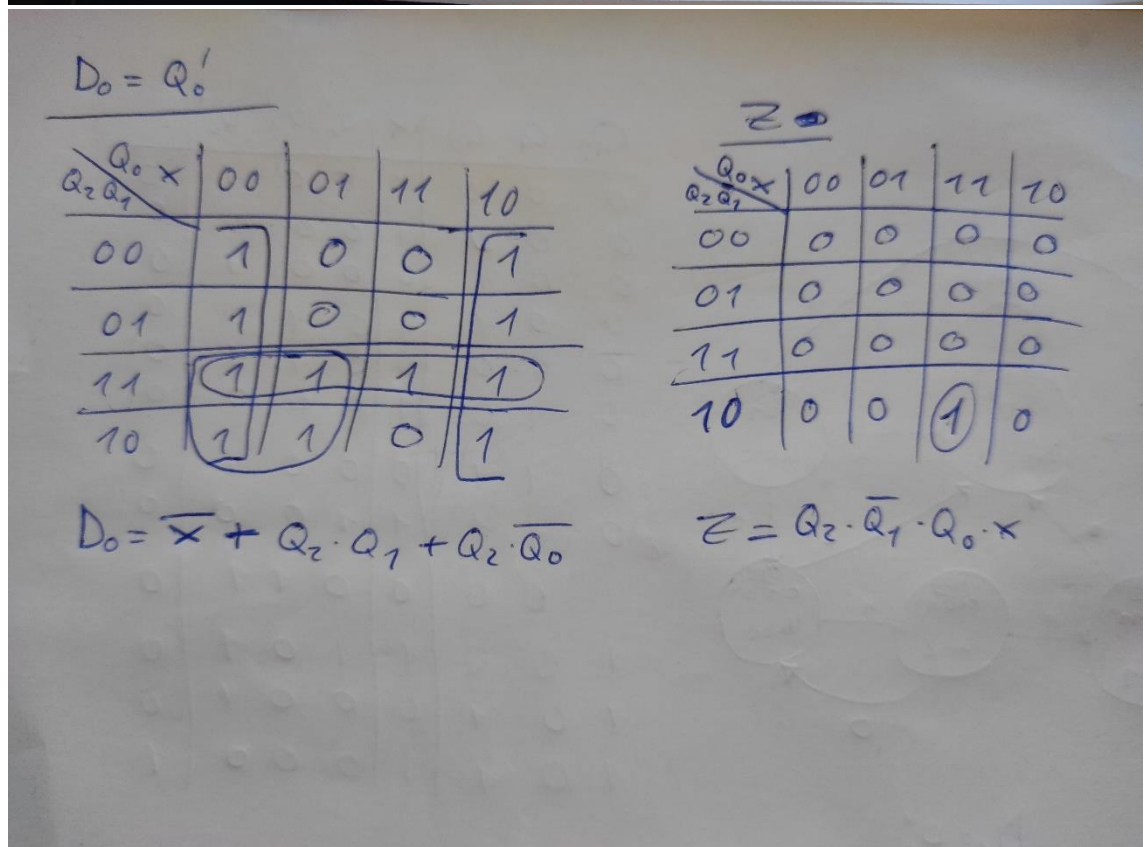 D₀ = Q₀'
Q₀ x 00 01 11 10
Q₂Q₁
00 1 0 0 1
01 1 0 0 1
11 1 1 1 1
10 1 1 0 1
D₀ = x̅ + Q₂·Q₁ + Q₂·Q̅₀
Z
Q₀x 00 01 11 10
Q₂Q₁
00 0 0 0 0
01 0 0 0 0
11 0 0 0 0
10 0 0 1 0
Z = Q₂·Q̅₁·Q₀·x